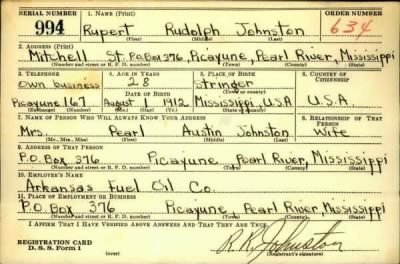 SERIAL NUMBER 1. NAME (Print) ORDER NUMBER
994 Rupert Rudolph Johnston 634
(First) (Middle) (Last)
2. ADDRESS (Print)
Mitchell St. P.O. Box 376, Picayune, Pearl River, Mississippi
(Number and street or R. F. D. number) (Town) (County) (State)
3. TELEPHONE 4. AGE IN YEARS 5. PLACE OF BIRTH 6. COUNTRY OF CITIZENSHIP
Own business 28 Stringer
DATE OF BIRTH (Town or county)
Picayune 167 August 1 1912 Mississippi, USA U.S.A.
(Exchange) (Number) (Mo.) (Day) (Yr.) (State or country)
7. NAME OF PERSON WHO WILL ALWAYS KNOW YOUR ADDRESS 8. RELATIONSHIP OF THAT PERSON
Mrs. Pearl Austin Johnston Wife
(Mr., Mrs., Miss) (First) (Middle) (Last)
9. ADDRESS OF THAT PERSON
P.O. Box 376 Picayune Pearl River, Mississippi
(Number and street or R. F. D. number) (Town) (County) (State)
10. EMPLOYER'S NAME
Arkansas Fuel Oil Co.
11. PLACE OF EMPLOYMENT OR BUSINESS
P.O. Box 376 Picayune, Pearl River Mississippi
(Number and street or R. F. D. number) (Town) (County) (State)
I AFFIRM THAT I HAVE VERIFIED ABOVE ANSWERS AND THAT THEY ARE TRUE.
REGISTRATION CARD
D. S. S. Form 1 (over) R.R. Johnston
(Registrant's signature)